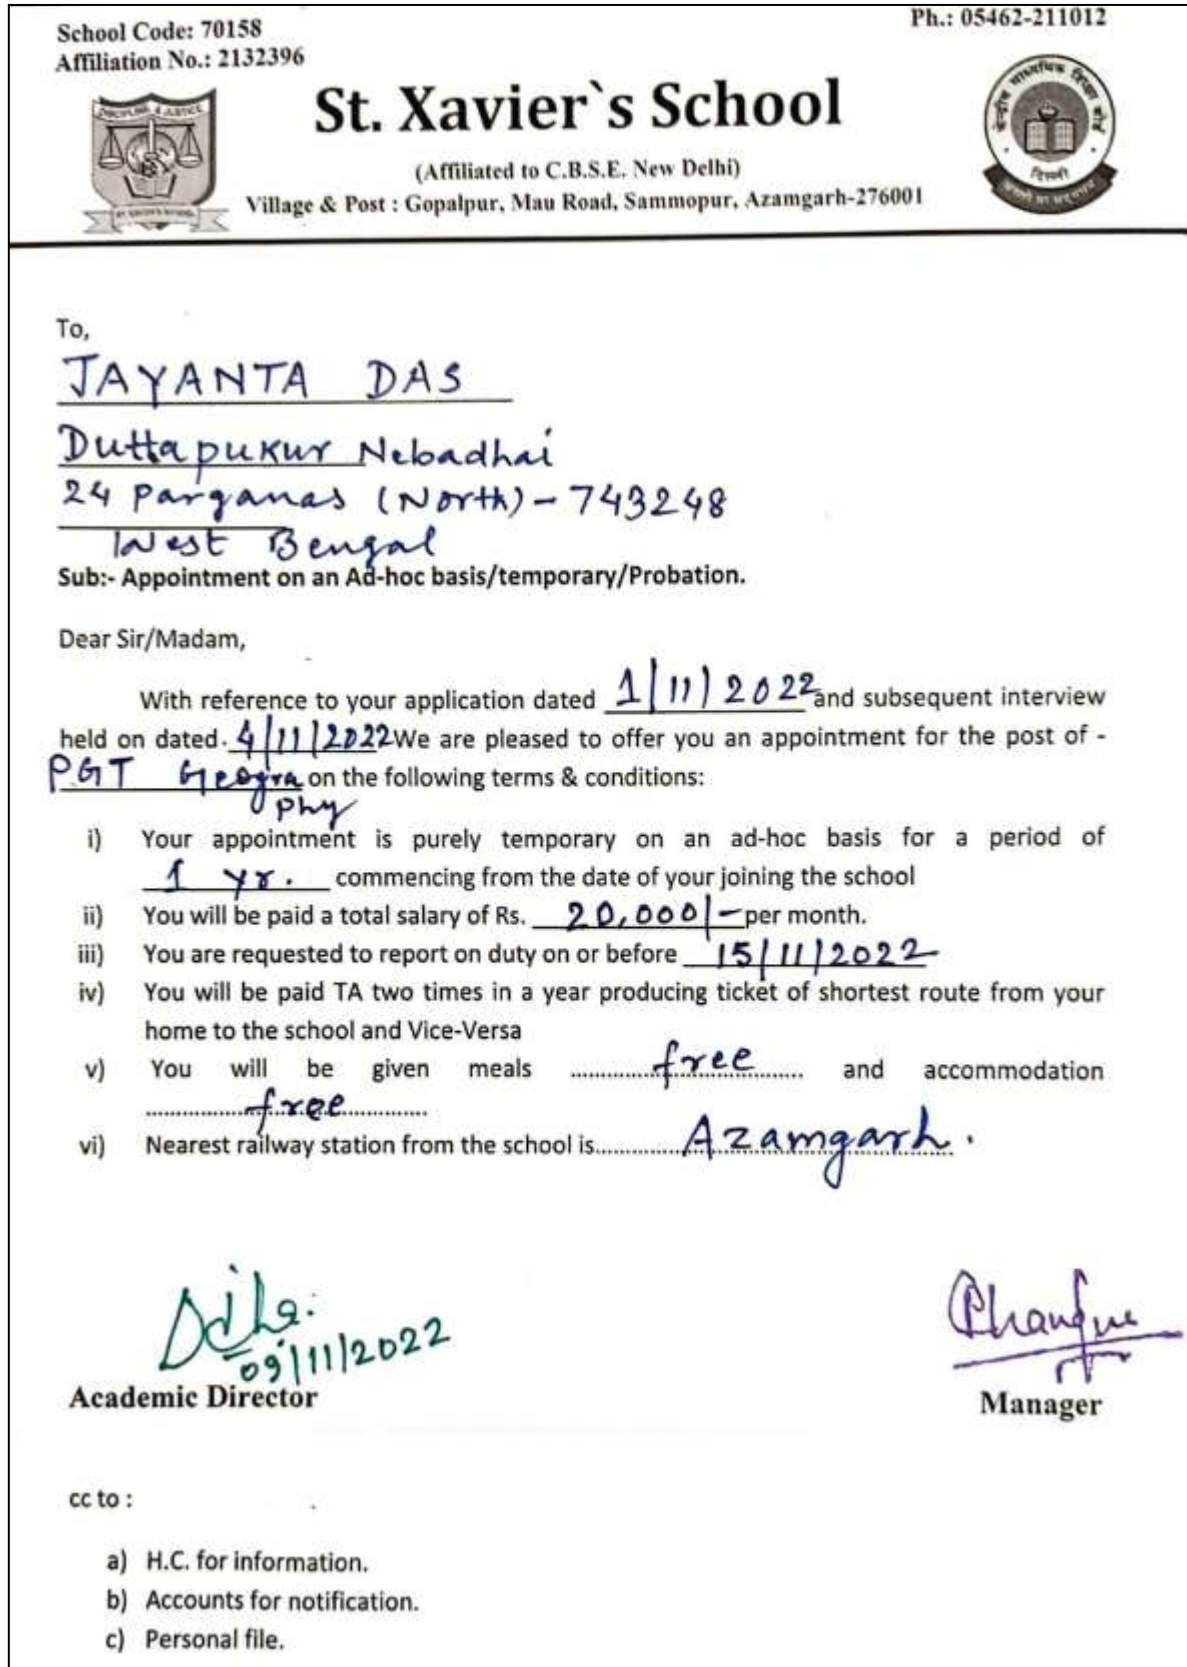 School Code: 70158
Ph.: 05462-211012
Affiliation No.: 2132396
DISCIPLINE & JUSTICE
St. Xavier`s School
(Affiliated to C.B.S.E. New Delhi)
Village & Post : Gopalpur, Mau Road, Sammopur, Azamgarh-276001
ST. XAVIER'S SCHOOL
केन्द्रीय माध्यमिक शिक्षा बोर्ड
दिल्ली
To,
JAYANTA DAS
Duttapukur Nebadhai
24 Parganas (North) - 743248
West Bengal
Sub:- Appointment on an Ad-hoc basis/temporary/Probation.
Dear Sir/Madam,
With reference to your application dated 1/11/2022 and subsequent interview
held on dated. 4/11/2022 We are pleased to offer you an appointment for the post of -
PGT Geogra on the following terms & conditions:
phy
i) Your appointment is purely temporary on an ad-hoc basis for a period of
1 yr. commencing from the date of your joining the school
ii) You will be paid a total salary of Rs. 20,000/- per month.
iii) You are requested to report on duty on or before 15/11/2022
iv) You will be paid TA two times in a year producing ticket of shortest route from your
home to the school and Vice-Versa
v) You will be given meals free and accommodation
free
vi) Nearest railway station from the school is Azamgarh.
09/11/2022
Academic Director
Manager
cc to :
a) H.C. for information.
b) Accounts for notification.
c) Personal file.